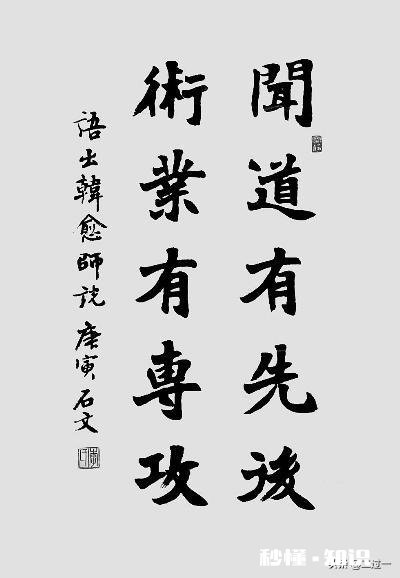 聞道有先後
術業有專攻
語出韓愈師說 庚寅石文
秒懂·知识